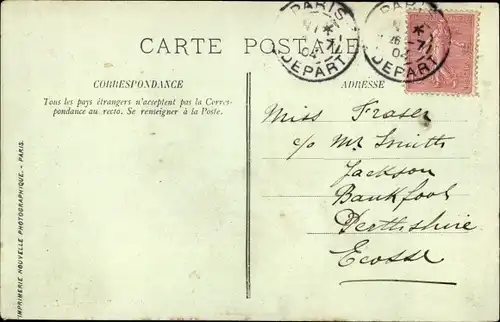 CARTE POSTALE
PARIS
DEPART
PARIS
DEPART
CORRESPONDANCE
Tous les pays étrangers n'acceptent pas la Corres-
pondance au recto. Se renseigner à la Poste.
ADRESSE
Miss Fraser
c/o Mr Smith's
Jackson
Bankfoot
Perthshire
Ecosse
IMPRIMERIE NOUVELLE PHOTOGRAPHIQUE. - PARIS.